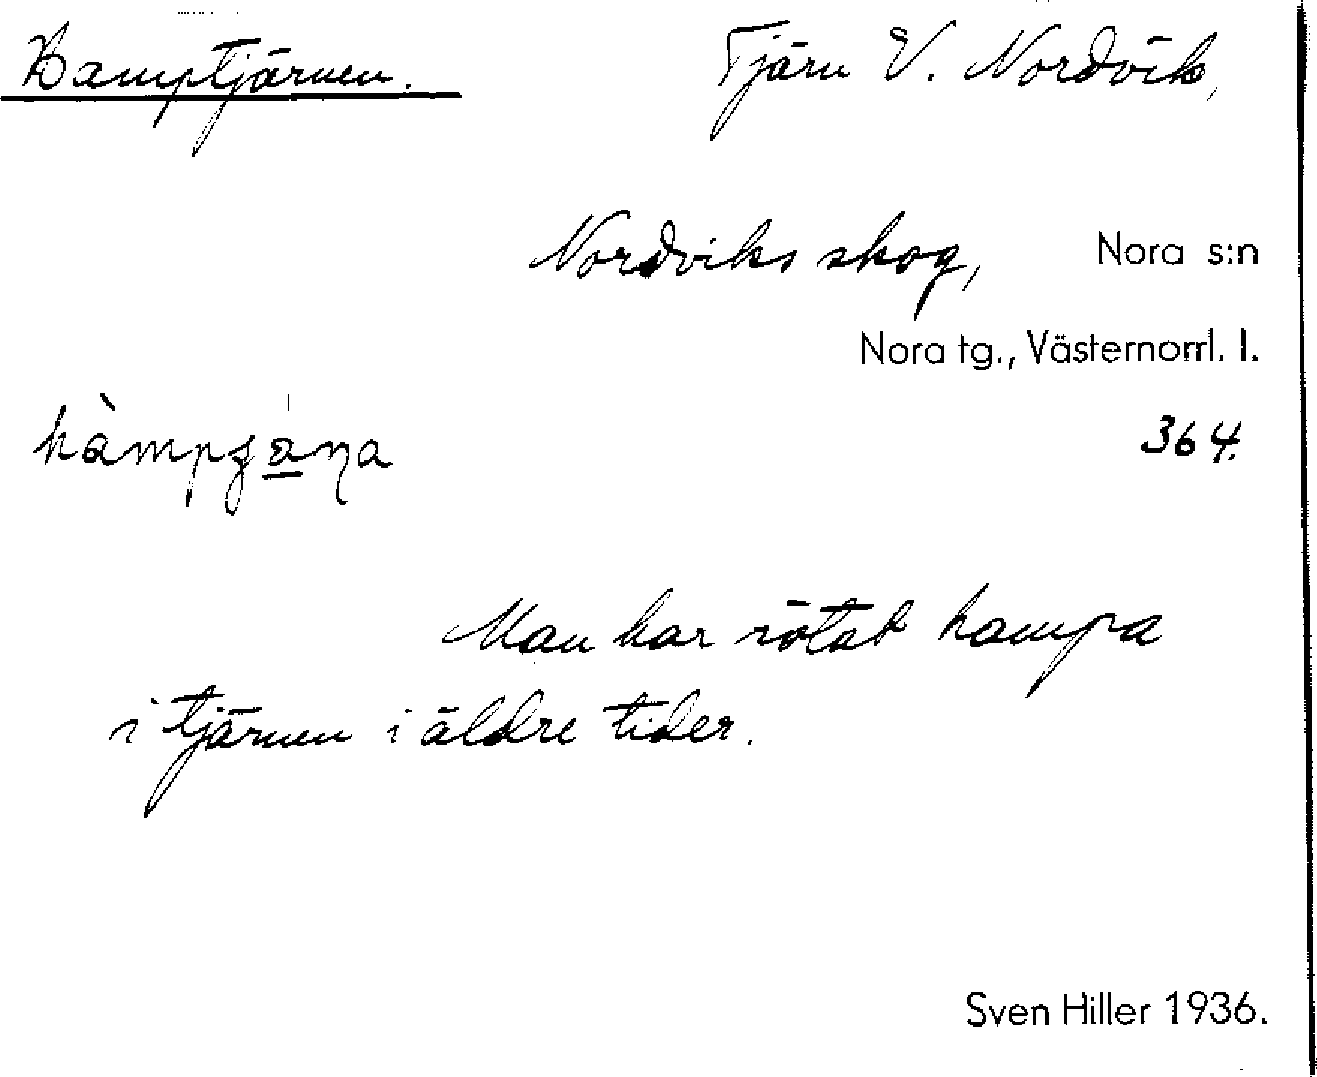 Hamptjärnen. Tjärn V. Nordvik,
Nordviks skog, Nora s:n
Nora tg., Västernorrl. l.
364.
Man har rötat hampa
i tjärnen i äldre tider.
Sven Hiller 1936.